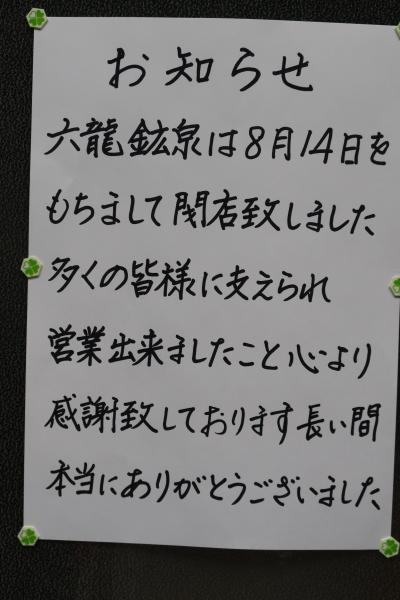 お知らせ
六龍鉱泉は8月14日を
もちまして閉店致しました
多くの皆様に支えられ
営業出来ましたこと心より
感謝致しております長い間
本当にありがとうございました